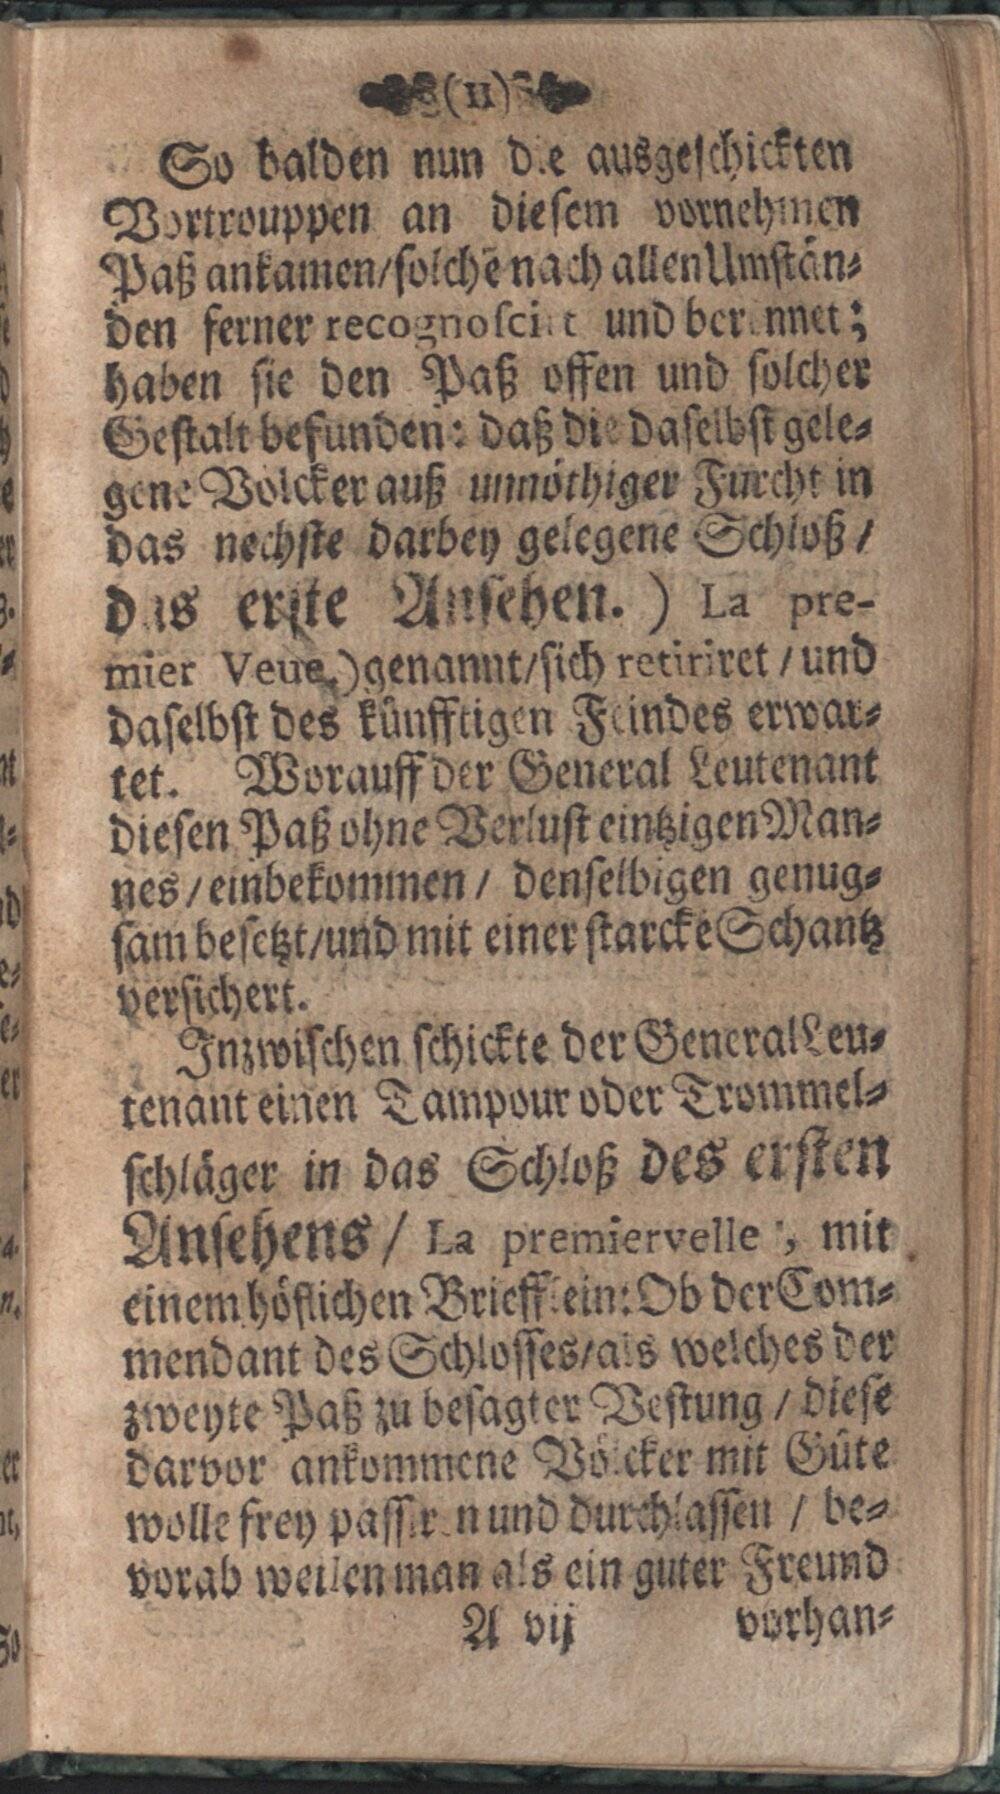 (11)
So balden nun die ausgeschickten
Vortrouppen an diesem vornehmen
Paß ankamen/solchē nach allen Umstän⸗
den ferner recognoscirt und berennet;
haben sie den Paß offen und solcher
Gestalt befunden: daß die daselbst gele⸗
gene Volcker auß unnöthiger Furcht in
das nechste darbey gelegene Schloß /
das erste Ansehen. ) La pre-
mier Veue.) genannt/sich retiriret / und
daselbst des künfftigen Feindes erwar⸗
tet. Worauff der General Leutenant
diesen Paß ohne Verlust eintzigen Man⸗
nes / einbekommen / denselbigen genug⸗
sam besetzt/und mit einer starckē Schantz
versichert.
Inzwischen schickte der General Leu⸗
tenant einen Tampour oder Trommel⸗
schläger in das Schloß des ersten
Ansehens / La premiervelle , mit
einem höflichen Briefflein: Ob der Com⸗
mendant des Schlosses/als welches der
zweyte Paß zu besagter Vestung / diese
darvor ankommene Völcker mit Güte
wolle frey passiren und durchlassen / be⸗
vorab weilen man als ein guter Freund
A vij vorhan⸗